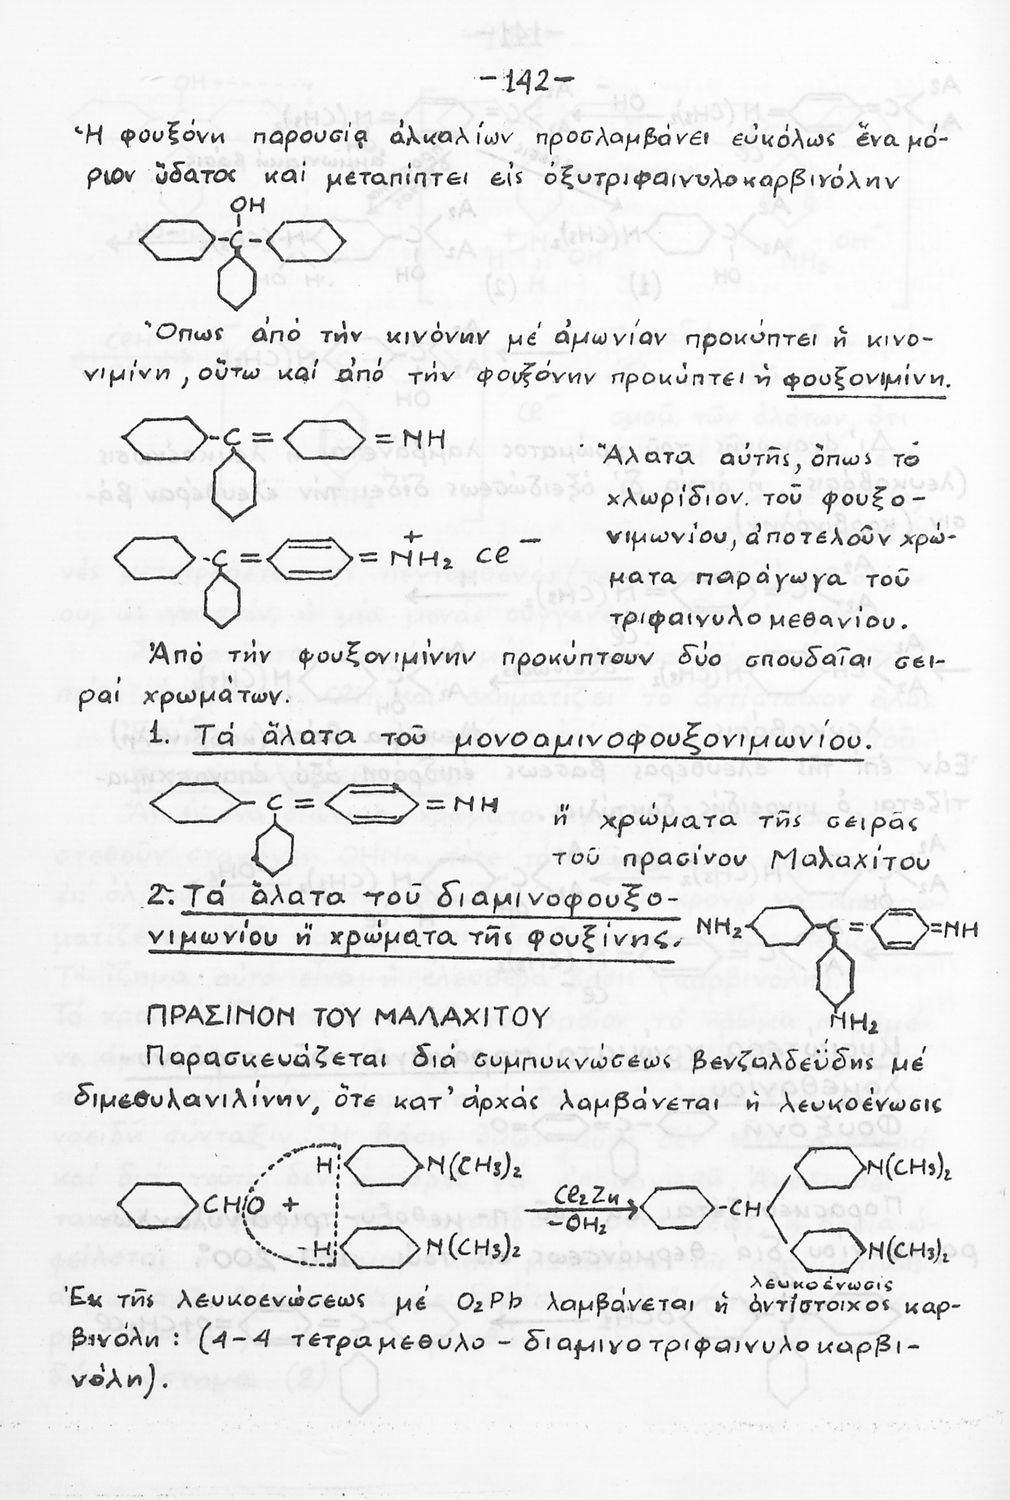 -142-
Ἡ φουξόνη παρουσίᾳ ἀλκαλίων προσλαμβάνει εὐκόλως ἕνα μό-
ριον ὕδατος καί μεταπίπτει εἰς ὀξυτριφαινυλοκαρβινόλην
OH
-C-
Ὅπως ἀπό τήν κινόνην μέ ἀμωνίαν προκύπτει ἡ κινο-
νιμίνη, οὕτω καί ἀπό τήν φουξόνην προκύπτει ἡ φουξονιμίνη.
-C= =NH
Ἅλατα αὐτῆς, ὅπως τό
χλωρίδιον. τοῦ φουξο-
-C= =NH₂⁺ Cl⁻
νιμωνίου, ἀποτελοῦν χρώ-
ματα παράγωγα τοῦ
τριφαινυλομεθανίου.
Ἀπό τήν φουξονιμίνην προκύπτουν δύο σπουδαῖαι σει-
ραί χρωμάτων.
1. Τά ἅλατα τοῦ μονοαμινοφουξονιμωνίου.
-C= =NH
ἤ χρώματα τῆς σειρᾶς
τοῦ πρασίνου Μαλαχίτου
2. Τά ἅλατα τοῦ διαμινοφουξο-
νιμωνίου ἤ χρώματα τῆς φουξίνης.
NH₂- -C= =NH
NH₂
ΠΡΑΣΙΝΟΝ ΤΟΥ ΜΑΛΑΧΙΤΟΥ
Παρασκευάζεται διά συμπυκνώσεως βενζαλδεΰδης μέ
διμεθυλανιλίνην, ὅτε κατ' ἀρχάς λαμβάνεται ἡ λευκοένωσις
H N(CH₃)₂
CHO +
H N(CH₃)₂
Cl₂Zn
-OH₂
-CH
N(CH₃)₂
N(CH₃)₂
λευκοένωσις
Ἐκ τῆς λευκοενώσεως μέ O₂Pb λαμβάνεται ἡ ἀντίστοιχος καρ-
βινόλη : (4-4 τετραμεθυλο - διαμινοτριφαινυλοκαρβι-
νόλη).